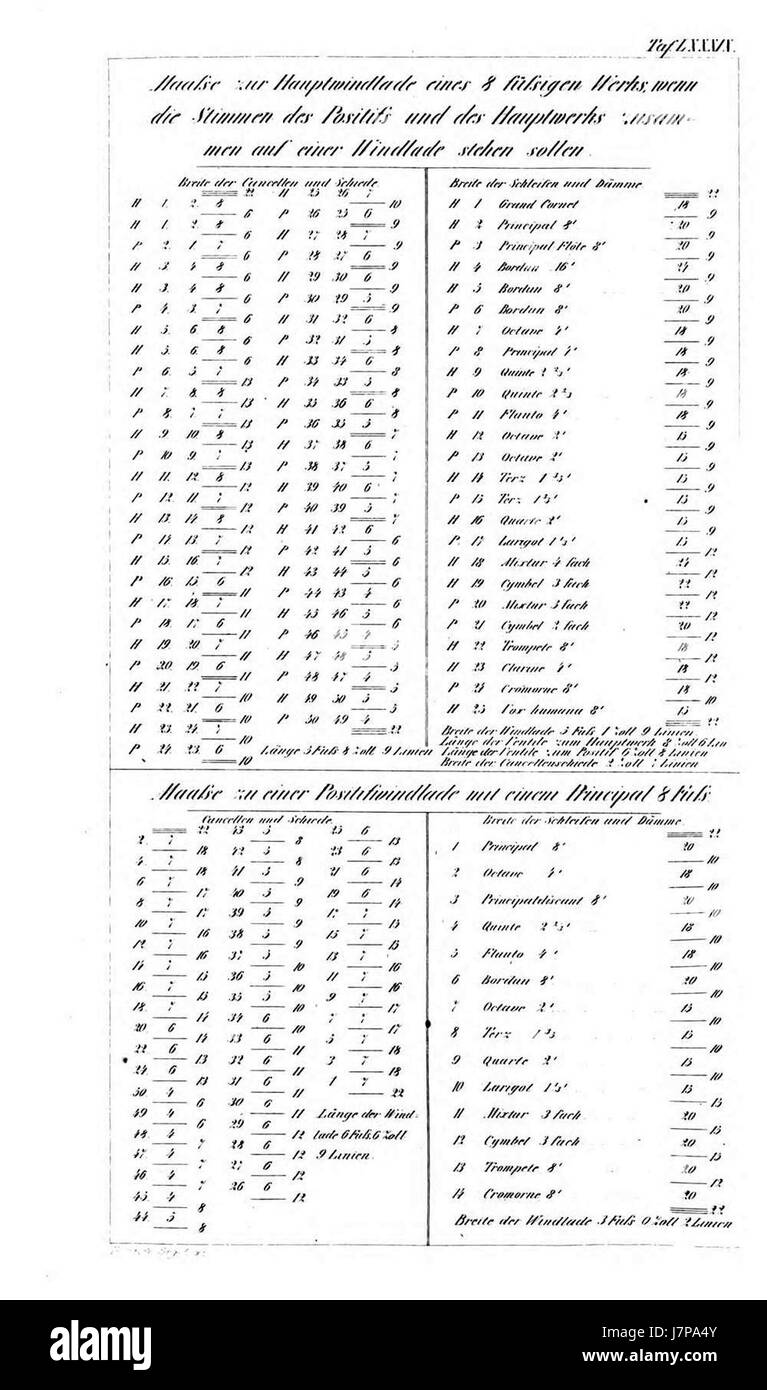 Taf LXXXIX.
Maafse zur Hauptwindlade eines 8 füfsigen Werks, wenn
die Stimmen des Positifs und des Hauptwerks zusam-
men auf einer Windlade stehen sollen.
Breite der Cancellen und Schiede
22
H 1. 2. 8
6
H 1. 2. 8
6
P 2. 1 7
6
H 3. 4 8
6
H 3. 4. 8
6
P 4. 3. 7
6
H 5. 6 8
6
H 5. 6. 8
6
P 6. 5 7
13
H 7. 8. 8
13
P 8. 7 7
13
H 9 10 8
13
P 10 9 7
13
H 11. 12. 8
12
P 12. 11 7
12
H 13. 14 8
12
P 14 13. 7
12
H 15. 16 7
12
P 16 15 6
11
H 17. 18. 7
11
P 18. 17 6
11
H 19 20 7
11
P 20. 19. 6
11
H 21. 22 7
10
P 22. 21 6
10
H 23. 24. 7
10
P 24. 23 6
10
H 25 26 7
10
P 26 25 6
9
H 27 28 7
9
P 28 27 6
9
H 29 30 6
9
P 30 29 5
9
H 31 32 6
8
P 32 31 5
8
H 33 34 6
8
P 34 33 5
8
H 35 36 6
8
P 36 35 5
7
H 37 38 6
7
P 38 37 5
7
H 39 40 6
7
P 40 39 5
7
H 41 42 6
6
P 42 41 5
6
H 43 44 5
6
P 44 43 4
6
H 45 46 5
6
P 46 45 4
5
H 47 48 5
5
P 48 47 4
5
H 49 50 5
5
P 50 49 4
22
Länge 5 Fufs 8 Zoll 9 Linien
Breite der Schleifen und Dämme
22
H 1 Grand Cornet 18
9
H 2 Principal 8' 20
9
P 3 Principal Flöte 8' 20
9
H 4 Bordun 16' 24
9
H 5 Bordun 8' 20
9
P 6 Bordun 8' 20
9
H 7 Octave 4' 18
9
P 8 Principal 4' 18
9
H 9 Quinte 2 2/3' 18
9
P 10 Quinte 2 2/3 18
9
P 11 Flauto 4' 18
9
H 12 Octave 2' 15
9
P 13 Octave 2' 15
9
H 14 Terz 1 3/5' 15
9
P 15 Terz 1 3/5' 15
9
H 16 Quarte 2' 15
9
P. 17 Larigot 1 1/3' 15
12
H 18 Mixtur 4 fach 24
12
H 19 Cymbel 3 fach 22
12
P 20 Mixtur 3 fach 22
12
P 21 Cymbel 2 fach 20
12
H 22 Trompete 8' 18
12
H 23 Clarine 4' 18
12
P 24 Cromorne 8' 18
10
H 25 Vox humana 8' 15
22
Breite der Windlade 5 Fufs 1 Zoll 9 Linien
Länge der Ventile zum Hauptwerk 8 Zoll 6 Lin
Länge der Ventile zum Positif 6 Zoll 8 Linien
Breite der Cancellenschiede 2 Zoll 7 Linien
Maafse zu einer Positifwindlade mit einem Principal 8 Fufs.
Cancellen und Schiede
22
2. 7
18
4. 7
18
6 7
17
8 7
17
10 7
16
12 7
16
14 7
15
16. 7
15
18. 7
14
20 6
14
22 6
13
24 6
13
50 4
6
49 4
6
48. 4
7
47. 4
7
46 4
7
45 4
8
44 5
8
43 5
8
42 5
8
41 5
9
40 5
9
39 5
9
38 5
9
37 5
10
36 5
10
35 5
10
34 6
10
33 6
11
32 6
11
31 6
11
30 6
11
29 6
12
28 6
12
27 6
12
26 6
12
25 6
13
23 6
13
21 6
14
19 6
14
17 7
15
15 7
15
13 7
16
11 7
16
9 7
17
7 7
17
5 7
18
3 7
18
1 7
22
Länge der Wind-
lade 6 Fufs. 6 Zoll
9 Linien.
Breite der Schleifen und Dämme
22
1 Principal 8' 20
10
2 Octave 4' 18
10
3 Principaldiscant 8' 20
10
4 Quinte 2 2/3' 18
10
5 Flauto 4' 18
10
6 Bordun 8' 20
10
7 Octave 2' 15
10
8 Terz 1 3/5 15
10
9 Quarte 2' 15
10
10 Larigot 1 1/3' 15
15
11 Mixtur 3 fach 20
15
12 Cymbel 3 fach 20
15
13 Trompete 8' 20
12
14 Cromorne 8' 20
22
Breite der Windlade 3 Fufs 0 Zoll 2 Linien
alamy
Image ID: J7PA4Y
www.alamy.com